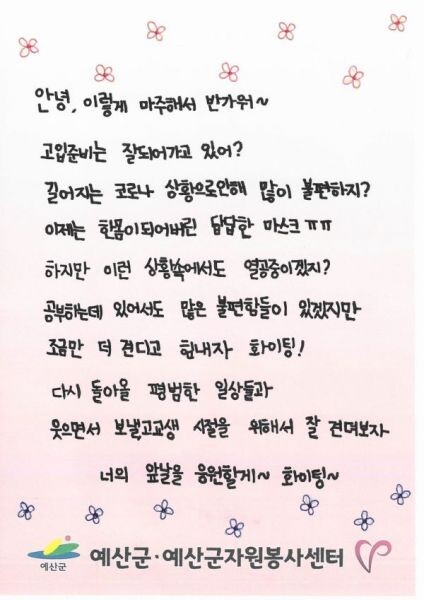 안녕, 이렇게 마주해서 반가워~
고입준비는 잘되어가고 있어?
길어지는 코로나 상황으로인해 많이 불편하지?
이제는 한몸이되어버린 답답한 마스크ㅠㅠ
하지만 이런 상황속에서도 열공중이겠지?
공부하는데 있어서도 많은 불편함들이 있겠지만
조금만 더 견디고 힘내자 화이팅!
다시 돌아올 평범한 일상들과
웃으면서 보낼고교생 시절을 위해서 잘 견뎌보자
너의 앞날을 응원할게~ 화이팅~
예산군 예산군·예산군자원봉사센터